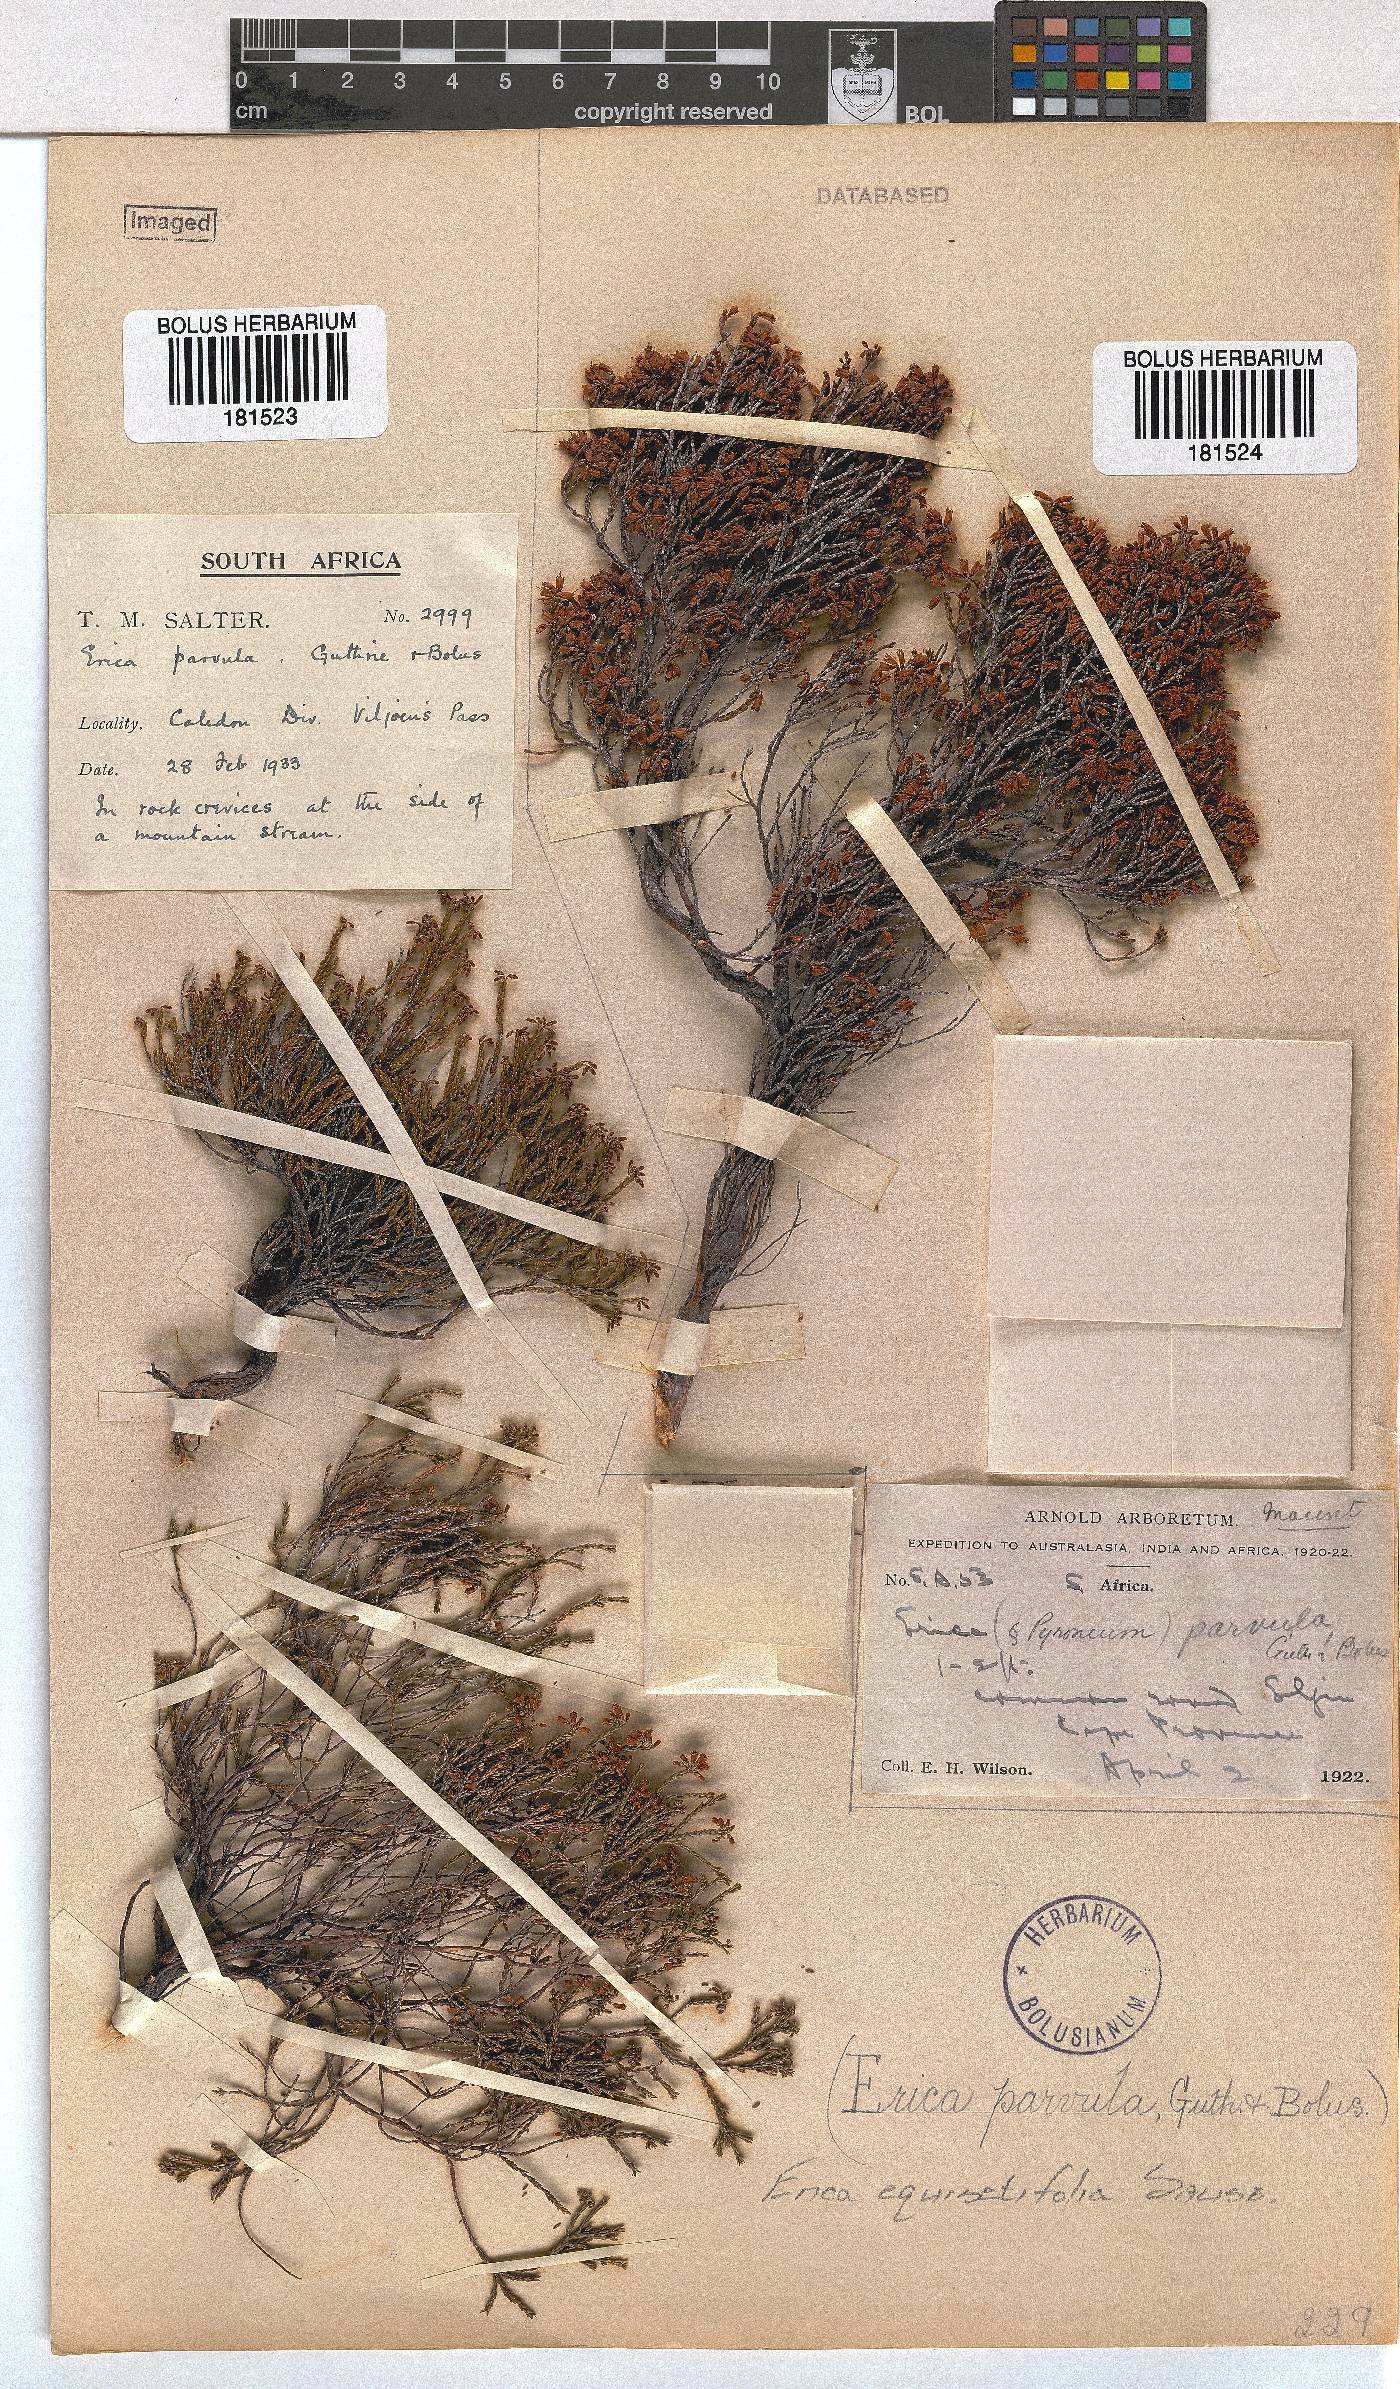 0 1 2 3 4 5 6 7 8 9 10
cm copyright reserved BOL
Imaged
DATABASED
BOLUS HERBARIUM
181523
BOLUS HERBARIUM
181524
SOUTH AFRICA
T. M. SALTER. No. 2999
Erica parvula. Guthrie & Bolus
Locality. Caledon Div. Viljoen's Pass
Date. 28 Feb 1933
In rock crevices at the side of
a mountain stream.
ARNOLD ARBORETUM. Mount
EXPEDITION TO AUSTRALASIA, INDIA AND AFRICA, 1920-22.
No. S. Africa.
Erica (§ Pyronium) parvula,
Guth & Bolus
1-2 ft.
common round Elgin
Cape Province
Coll. E. H. Wilson. April 2 1922.
HERBARIUM
BOLUSIANUM
(Erica parvula, Guth. & Bolus.)
Erica equisetifolia Salisb.
229